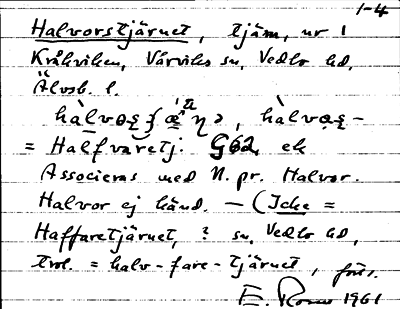 1-4
Halvorstjärnet, tjäm, nr 1
Kråkviken, Vårviks sn, Vedbo hd,
Älvsb. l.
hàlvo̤s̤
= Halfvaretj. G62, ek
Associeras med N. pr. Halvor.
Halvor ej känd. — (Icke =
Haffaretjärnet, ? sn, Vedbo hd,
trol. = halv-fare-tjärnet, förs.
E. Rosro 1961